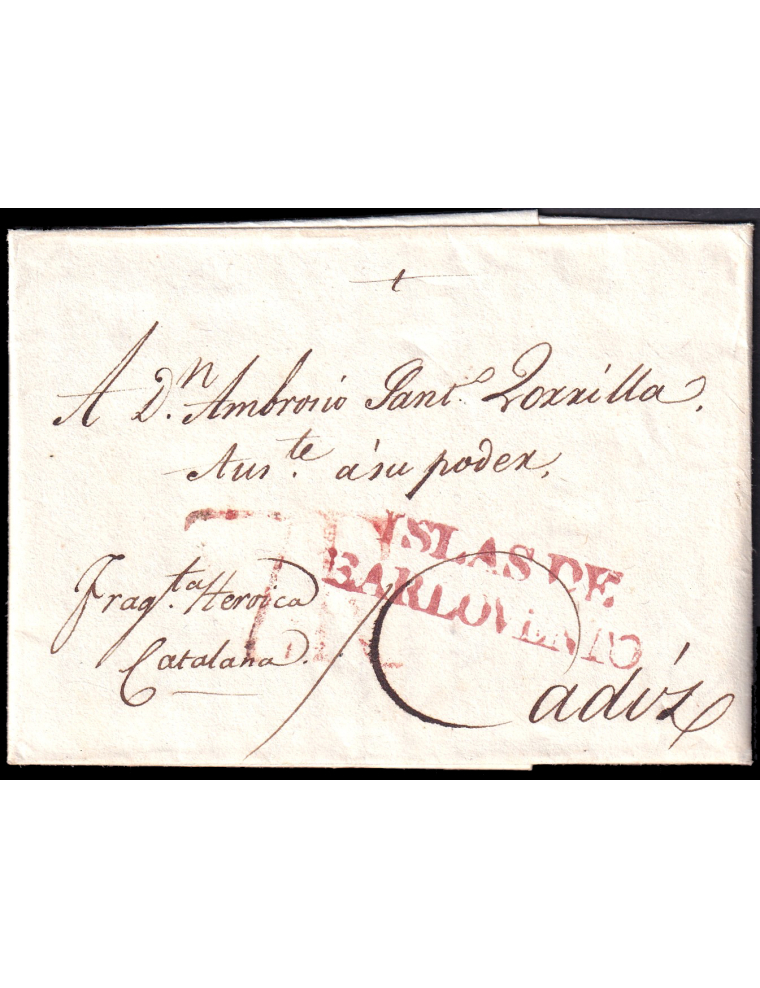 +
A D.n Ambrosio Sant.o Zorrilla,
Aus.te á su poder,
ISLAS DE
BARLOVENTO
7 R
Frag.ta Heroica
Catalana.
Cadiz